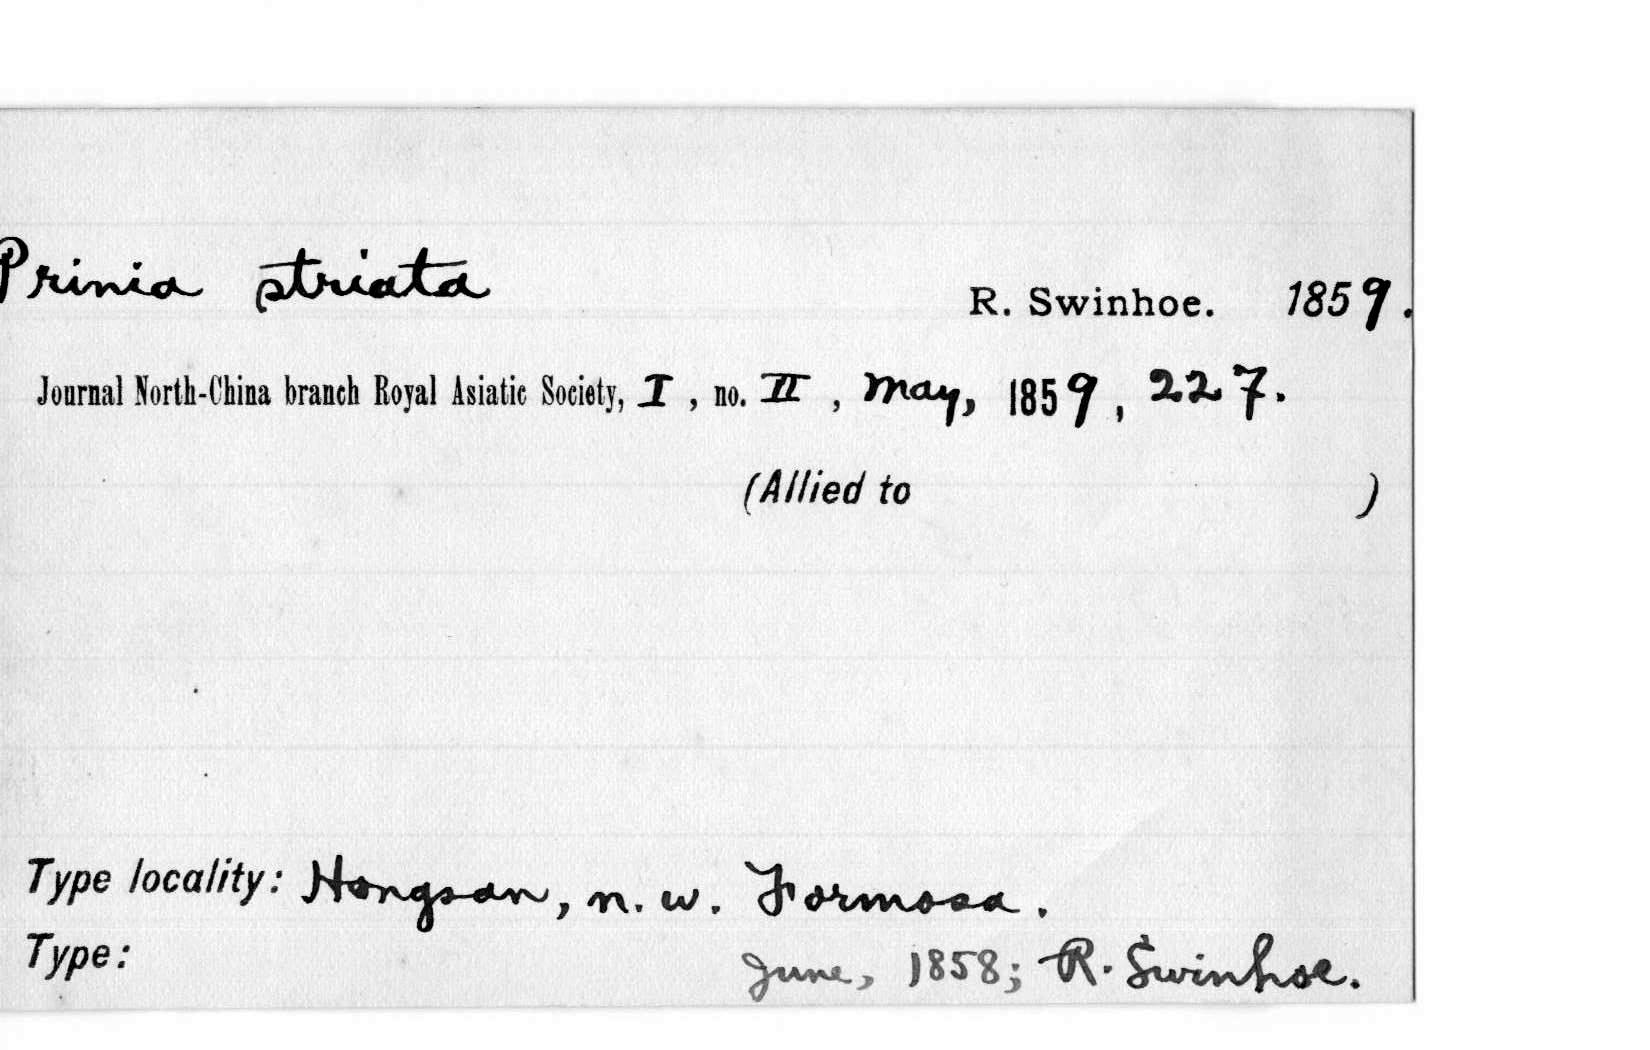 Prinia striata
R. Swinhoe. 1859.
Journal North-China branch Royal Asiatic Society, I, no. II, May, 1859, 227.
(Allied to )
Type locality: Hongsan, n. w. Formosa.
Type: June, 1858; R. Swinhoe.